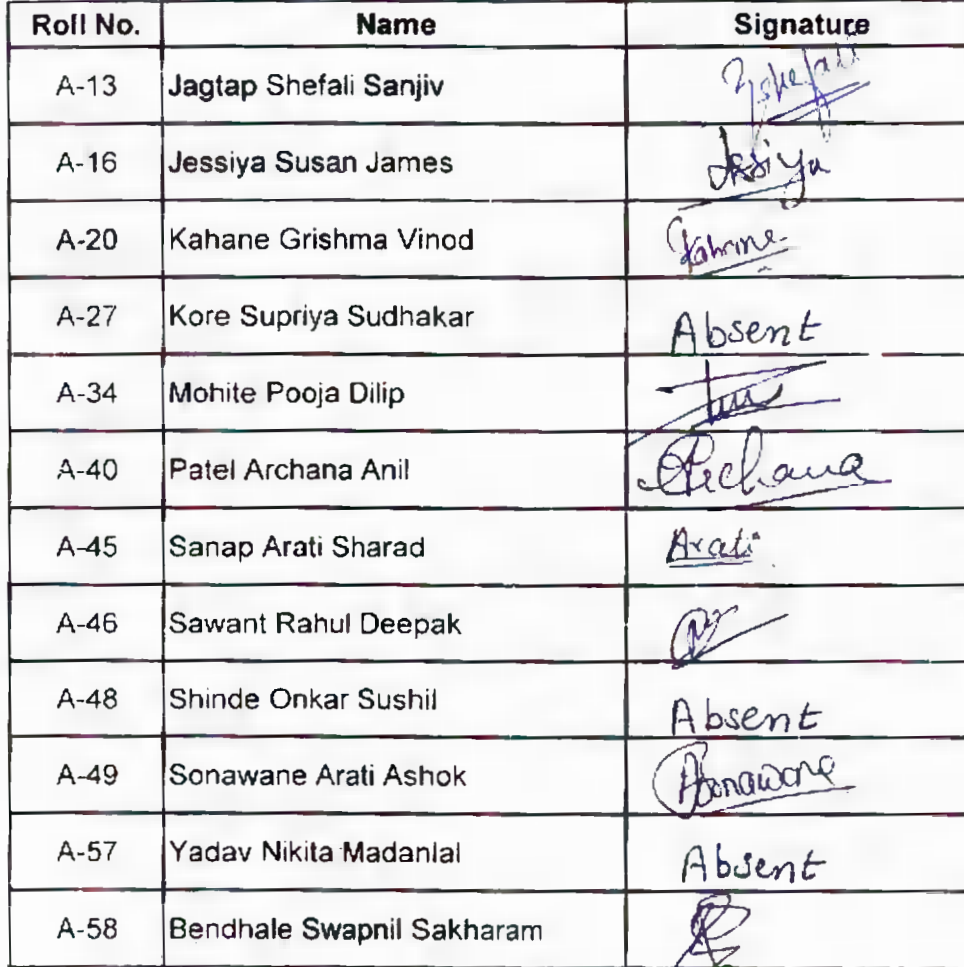 Roll No. Name Signature
A-13 Jagtap Shefali Sanjiv
A-16 Jessiya Susan James Jessiya
A-20 Kahane Grishma Vinod
A-27 Kore Supriya Sudhakar Absent
A-34 Mohite Pooja Dilip
A-40 Patel Archana Anil Archana
A-45 Sanap Arati Sharad Arati
A-46 Sawant Rahul Deepak
A-48 Shinde Onkar Sushil Absent
A-49 Sonawane Arati Ashok ASonawane
A-57 Yadav Nikita Madanlal Absent
A-58 Bendhale Swapnil Sakharam